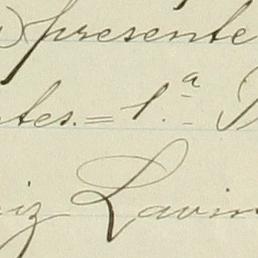 presente
tes. = 1.ª
iz Lavin